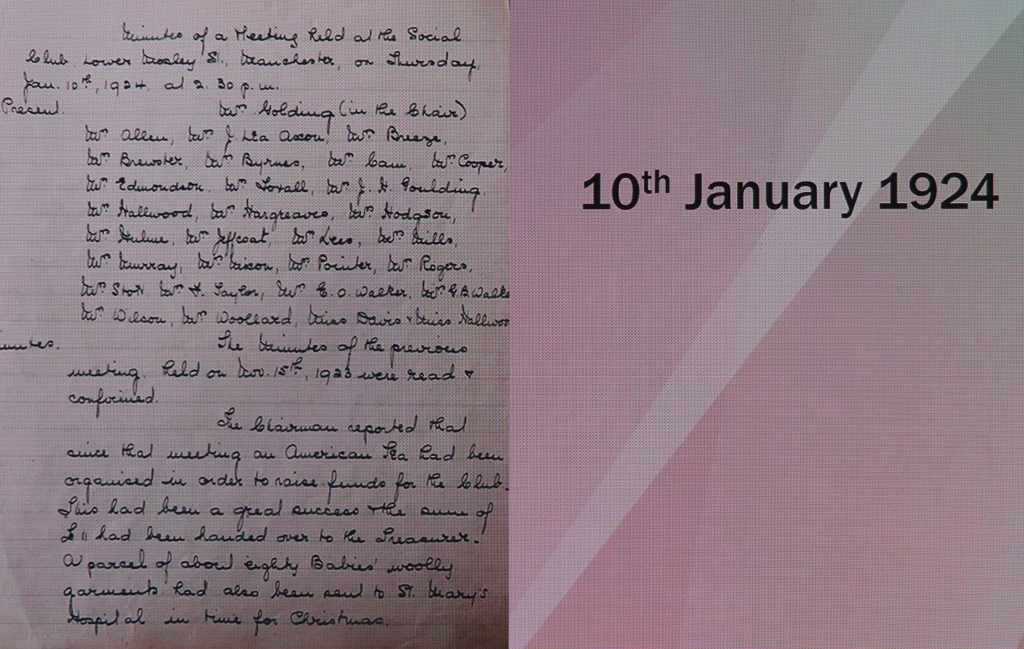 Minutes of a Meeting held at the Social
Club, Lower Mosley St., Manchester, on Thursday,
Jan. 10th, 1924. at 2.30 p.m.
Present. Mrs Golding (in the Chair)
Mrs Allen, Mrs J Lea Axon, Mrs Breeze,
Mrs Brewster, Mrs Byrnes, Mrs Cam, Mrs Cooper,
Mrs Edmondson, Mrs Foxall, Mrs J. H. Goulding,
Mrs Hallwood, Mrs Hargreaves, Mrs Hodgson,
Mrs Hulme, Mrs Jeffcoat, Mrs Lees, Mrs Mills,
Mrs Murray, Mrs Nixon, Mrs Pointer, Mrs Rogers,
Mrs Stott Mrs F. Taylor, Mrs E. O. Walker, Mrs G.B. Walk
Mrs Wilson, Mrs Woollard, Miss Davis & Miss Hallwoo
inutes. The Minutes of the previous
meeting, held on Nov. 15th, 1923 were read &
confirmed.
The Chairman reported that
since that meeting an American Tea had been
organised in order to raise funds for the Club.
This had been a great success & the sum of
£11 had been handed over to the Treasurer.
A parcel of about eighty Babies' woolly
garments had also been sent to St. Mary's
Hospital in time for Christmas.
10th January 1924